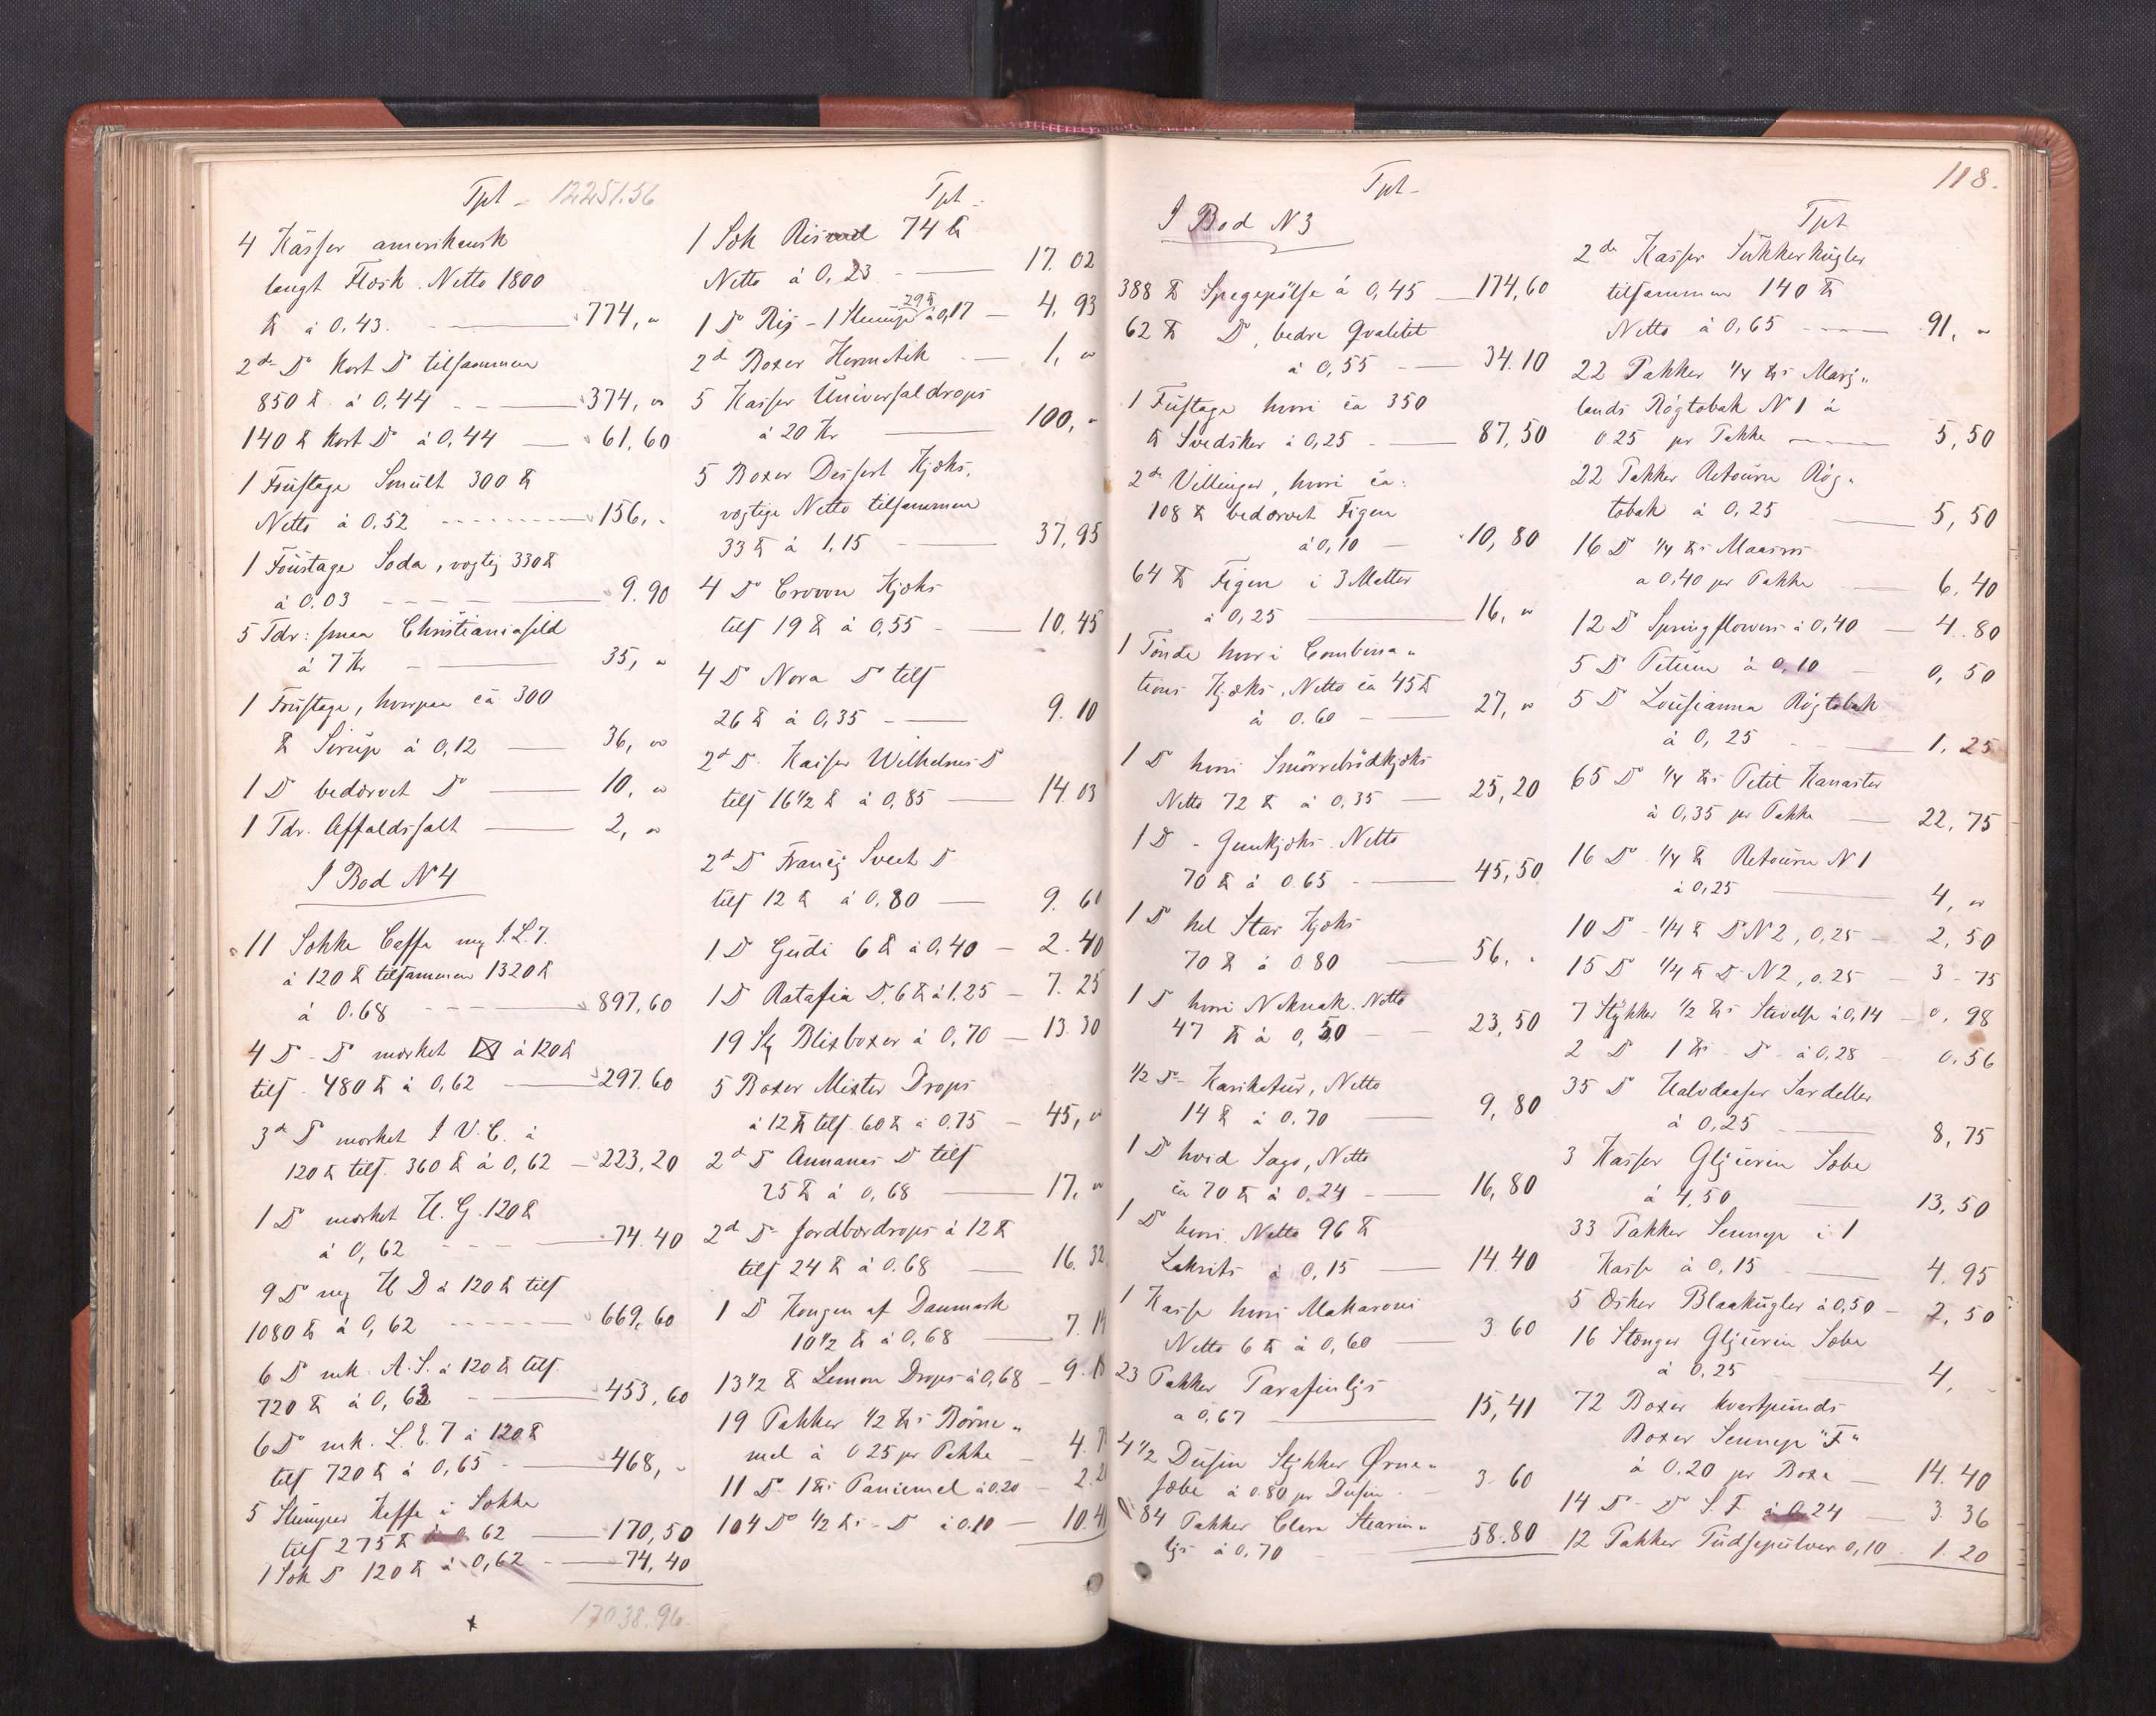 Tpt - 12251.56
4 Kasser amerikansk
langt Flesk. Netto 1800
℔ à 0,43. 774, "
2de Do kort Do tilsammen
850 ℔ à 0,44 374, "
140 ℔ kort Do à 0,44 61,60
1 Foustage Smult 300 ℔
Netto à 0,52 156, "
1 Foustage Soda, vægtig 330 ℔
à 0,03 9.90
5 Tdr: smaa Christianiasild
à 7 Kr 35, "
1 Foustage, hvorpaa ca 300
℔ Sirup à 0,12 36, "
1 Do bedærvet Do 10, "
1 Tdr. Affaldssalt 2, "
I Bod N 4
11 Sække Caffe mrk
à 120 ℔ tilsammen 1320 ℔
à 0.68 897,60
4 Do - Do mærket ⊠ à 120 ℔
tils. 480 ℔ à 0,62 297.60
3de Do mærket I V. C. à
120 ℔ tils. 360 ℔ à 0,62 223,20
1 Do mærket H. G. 120 ℔
à 0,62 74.40
9 Do mrk H D à 120 ℔ tils
1080 ℔ à 0,62 669,60
6 Do mk. A. S. à 120 ℔ tils.
720 ℔ à 0,63 453,60
6 Do mk. L. E. 7 à 120 ℔
tils 720 ℔ à 0,65 468, "
5 Slumper Kaffe i Sække
tils 275 ℔ à 0,62 170,50
1 Sæk Do 120 ℔ à 0,62 74,40
17038.96
Tpt -
1 Sæk Rismel 74 ℔
Netto à 0,23 17.02
1 Do Ris - 1 Slump 29 ℔ à 0,17 4,93
2de Boxer Hermetik 1, "
5 Kasser Universaldrops
à 20 Kr 100, "
5 Boxer Dessert Kjæks,
vægtige Netto tilsammen
33 ℔ à 1,15 37,95
4 Do Crown Kjæks
tils 19 ℔ à 0,55 10,45
4 Do Nora Do tils
26 ℔ à 0,35 9.10
2de Do Kaiser Wilhelms Do
tils 16 1/2 ℔ à 0,85 14.03
2de Do Do
tils 12 ℔ à 0,80 9.60
1 Do Gudi 6 ℔ à 0,40 2.40
1 Do Ratafia Do 6 ℔ à 1.25 7.25
19 St Blikboxer à 0,70 13.30
5 Boxer Mixter Drops
à 12 ℔ tils. 60 ℔ à 0.75 45, "
2de Do Annanas Do tils
25 ℔ à 0,68 17, "
2de Do Jordbærdrops à 12 ℔
tils 24 ℔ à 0.68 16.32
1 Do Kongen af Danmark
10 1/2 ℔ à 0,68 7.14
13 1/2 ℔ Lemon Drops à 0,68 9.18
19 Pakker 1/2 ℔s Børne-
mel à 0 25 pr Pakke 4.75
11 Do 1 ℔s Paniermel à 0.20 2.20
104 Do 1/2 ℔s - Do à 0.10 10.40
118.
Tpt -
I Bod N 3
388 ℔ Spegepølse à 0,45 174,60
62 ℔ Do, bedre Qvalitet
à 0,55 34.10
1 Fustage hvori ca 350
℔ Svedsker à 0,25 87,50
2de Villinger, hvori ca:
108 ℔ bedærvet Figen
à 0,10 10,80
64 ℔ Figen i 3 Matter
à 0,25 16, "
1 Tønde hvori Combina-
tions Kjæks, Netto ca 45 ℔
à 0.60 27, "
1 Do hvori Smørrebrødkjæks
Netto 72 ℔ à 0,35 25,20
1 Do - Gemkjæks. Netto
70 ℔ à 0.65 45,50
1 Do hel Star Kjæks
70 ℔ à 0.80 56, "
1 Do hvori Netto
47 ℔ à 0,50 23,50
1/2 Do Karikatur, Netto
14 ℔ à 0.70 9,80
1 Do hvid Sago, Netto
ca 70 ℔ à 0,24 16,80
1 Do hvori Netto 96 ℔
Lakrits à 0,15 14.40
1 Kasse hvori Makaroni
Netto 6 ℔ à 0,60 3.60
23 Pakker Parafinljs
a 0,67 15,41
4 1/2 Dusin Stykker Ørne-
sæbe à 0.80 pr Dusin 3.60
84 Pakker Clara Stearin-
ljs à 0,70 58.80
Tpt
2de Kasser Sukkerkugler
tilsammen 140 ℔
Netto à 0,65 91, "
22 Pakker 1/4 ℔s Mary-
lands Røgtobak N 1 à
0 25 pr Pakke 5,50
22 Pakker Retouren Røg-
tobak à 0,25 5,50
16 Do 1/4 ℔s
a 0,40 pr Pakke 6,40
12 Do Springflowers à 0,40 4.80
5 Do Petum à 0,10 0,50
5 Do Louisianna Røgtobak
à 0,25 1,25
65 Do 1/4 ℔s Petit Kanaster
à 0,35 pr Pakke 22,75
16 Do 1/4 ℔ Retouren N 1
à 0,25 4, "
10 Do - 1/4 ℔ Do N 2, 0,25 2,50
15 Do 1/4 ℔ Do N 2, 0.25 3-75
7 Stykker 1/2 ℔s Stivelse à 0,14 0,98
2 Do 1 ℔s - Do - à 0,28 0,56
35 Do Halvdaaser Sardeller
à 0,25 8,75
3 Kasser Gljcerin Sæbe
à 4,50 13,50
33 Pakker Sennep i 1
Kasse à 0,15 4,95
5 Æsker Blaakugler à 0,50 2,50
16 Stænger Gljcerin Sæbe
à 0,25 4, -
72 Boxer kvartpunds
Boxer Sennep "F"
à 0.20 pr Boxe 14.40
14 Do - Do S. F. à 0.24 3.36
12 Pakker Pudsepulver 0,10 1.20